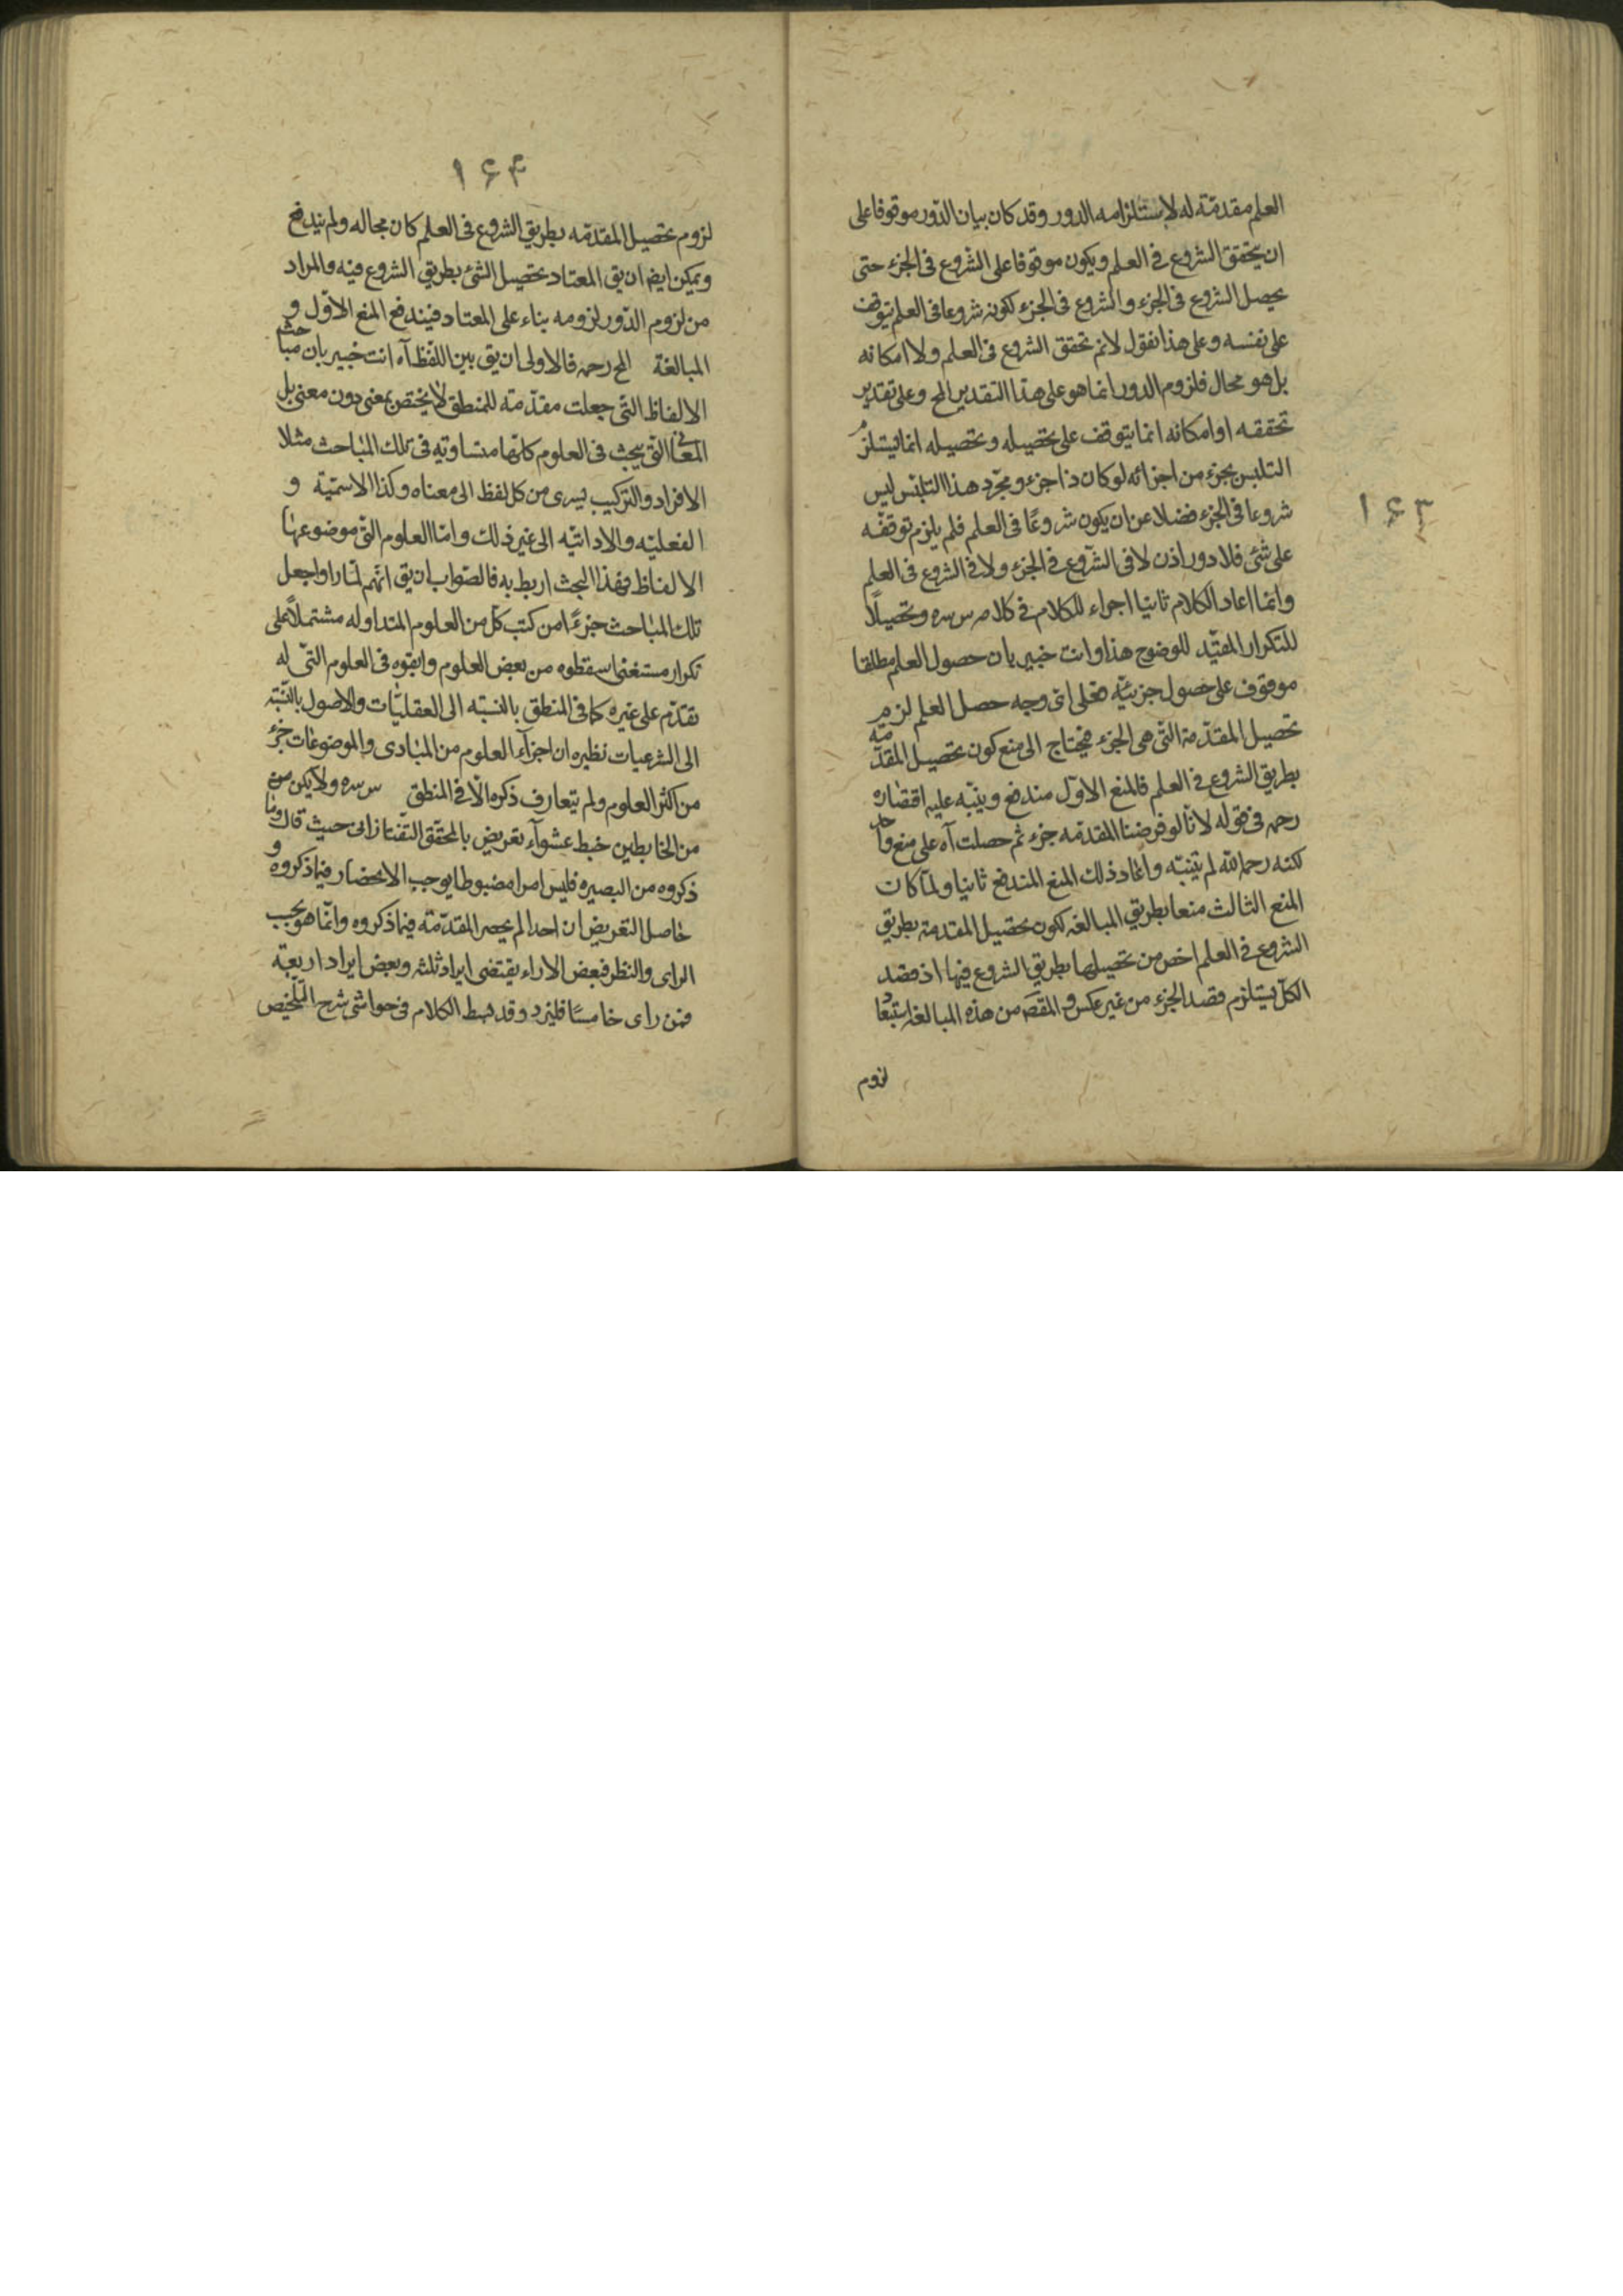 ۱۶۳
العلم مقدمّة له لاستلزامه الدور وقد كان بيان الدّور موقوفا على
ان يتحقق الشروع فى العلم ويكون موقوفا على الشروع فى الجزء حتى
يحصل الشروع فى الجزء والشروع فى الجزء لكونه شروعا فى العلم يتوقف
على نفسه وعلى هذا نقول لانم تحقق الشروع فى العلم ولا امكانه
بل هو محال فلزوم الدور انما هو على هذا التقدير المح وعلى تقدير
تحققه او امكانه انما يتوقف على تحصيله وتحصيله انما يستلزم
التلبس بجزء من اجزائه لو كان ذا جزء ومجرّد هذا التلبّس ليس
شروعا فى الجزء فضلا عن ان يكون شروعًا فى العلم فلم يلزم توقفه
على شئ فلا دور اذن لا فى الشروع فى الجزء ولا فى الشروع فى العلم
وانما اعاد الكلام ثانيا اجراء للكلام فى كلام س سره وتحصيلًا
للتكرار المفيّد للوضوح هذا وانت خبير بان حصول العلم مطلقا
موقوف على حصول جزئيّه فعلى اى وجه حصل العلم لزم
تحصيل المقدّمة التى هى الجزء فيحتاج الى منع كون تحصيل المقدّمة
بطريق الشروع فى العلم فالمنع الاوّل مندفع وينبّه عليه اقتصاره
رحمه فى قوله لانّا لو فرضنا المقدمه جزء ثم حصلت آه على منع واحد
لكنه رحمه الله لم يتنبّه واعاد ذلك المنع المندفع ثانيا ولمّا كان
المنع الثالث منعا بطريق المبالغه لكون تحصيل المقدمة بطريق
الشروع فى العلم اخص من تحصيلها بطريق الشروع فيها اذ قصد
الكلّ يستلزم قصد الجزء من غير عكس والمقصَ من هذه المبالغه استبعاد
لزوم
۱۶۴
لزوم تحصيل المقدّمه بطريق الشروع فى العلم كان مجاله ولم يندفع
ويمكن ايضا ان يق المعتاد تحصيل الشئ بطريق الشروع فيه والمراد
من لزوم الدّور لزومه بناء على المعتاد فيندفع المنع الاوّل و
المبالغة المح رحمه فالاولى ان يق بين اللّفظ آه انت خبير بان مباحث
الالفاظ التّى جعلت مقدّمة للمنطق لا يختص بمعنى دون معنى بل
المعانى التّى يبحث فى العلوم كانها متساويّه فى تلك المباحث مثلا
الافراد والتركيب يسرى من كل لفظ الى معناه وكذا الاسميّة و
الفعليّه والاداتيّه الى غير ذلك وامّا العلوم التّى موضوعها
الالفاظ فهذا البحث اربط به فالصّواب ان يق انّهم لمّا راوا جعل
تلك المباحث جزءًا من كتب كلّ من العلوم المتداوله مشتملًا على
تكرار مستغنى اسقطوه من بعض العلوم وابقوه فى العلوم التّى له
تقدّم على غيره كما فى المنطق بالنسبّه الى العقليّات والاصول بالنّسبة
الى الشرعيات نظيره ان اجزآء العلوم من المبادى والموضوعات جزء
من اكثر العلوم ولم يتعارف ذكره الّا فى المنطق س سره ولا يكن من
من الخابطين خبط عشوآء تعريض بالمحقّق التّفتازانى حيث قال وما
ذكروه من البصيره فليس امرا مضبوطا يوجب الانحصار فيما ذكروه و
حاصل التعريض ان احدا لم يحصر المقدّمة فيما ذكروه وانّما هو بحسب
الراى والنظر فبعض الاراء يقتضى ايراد ثلثه وبعض ايراد اربعة
فمن راى خامسًا فليزد وقد بسط الكلام فى حواشى شرح التّلخيص